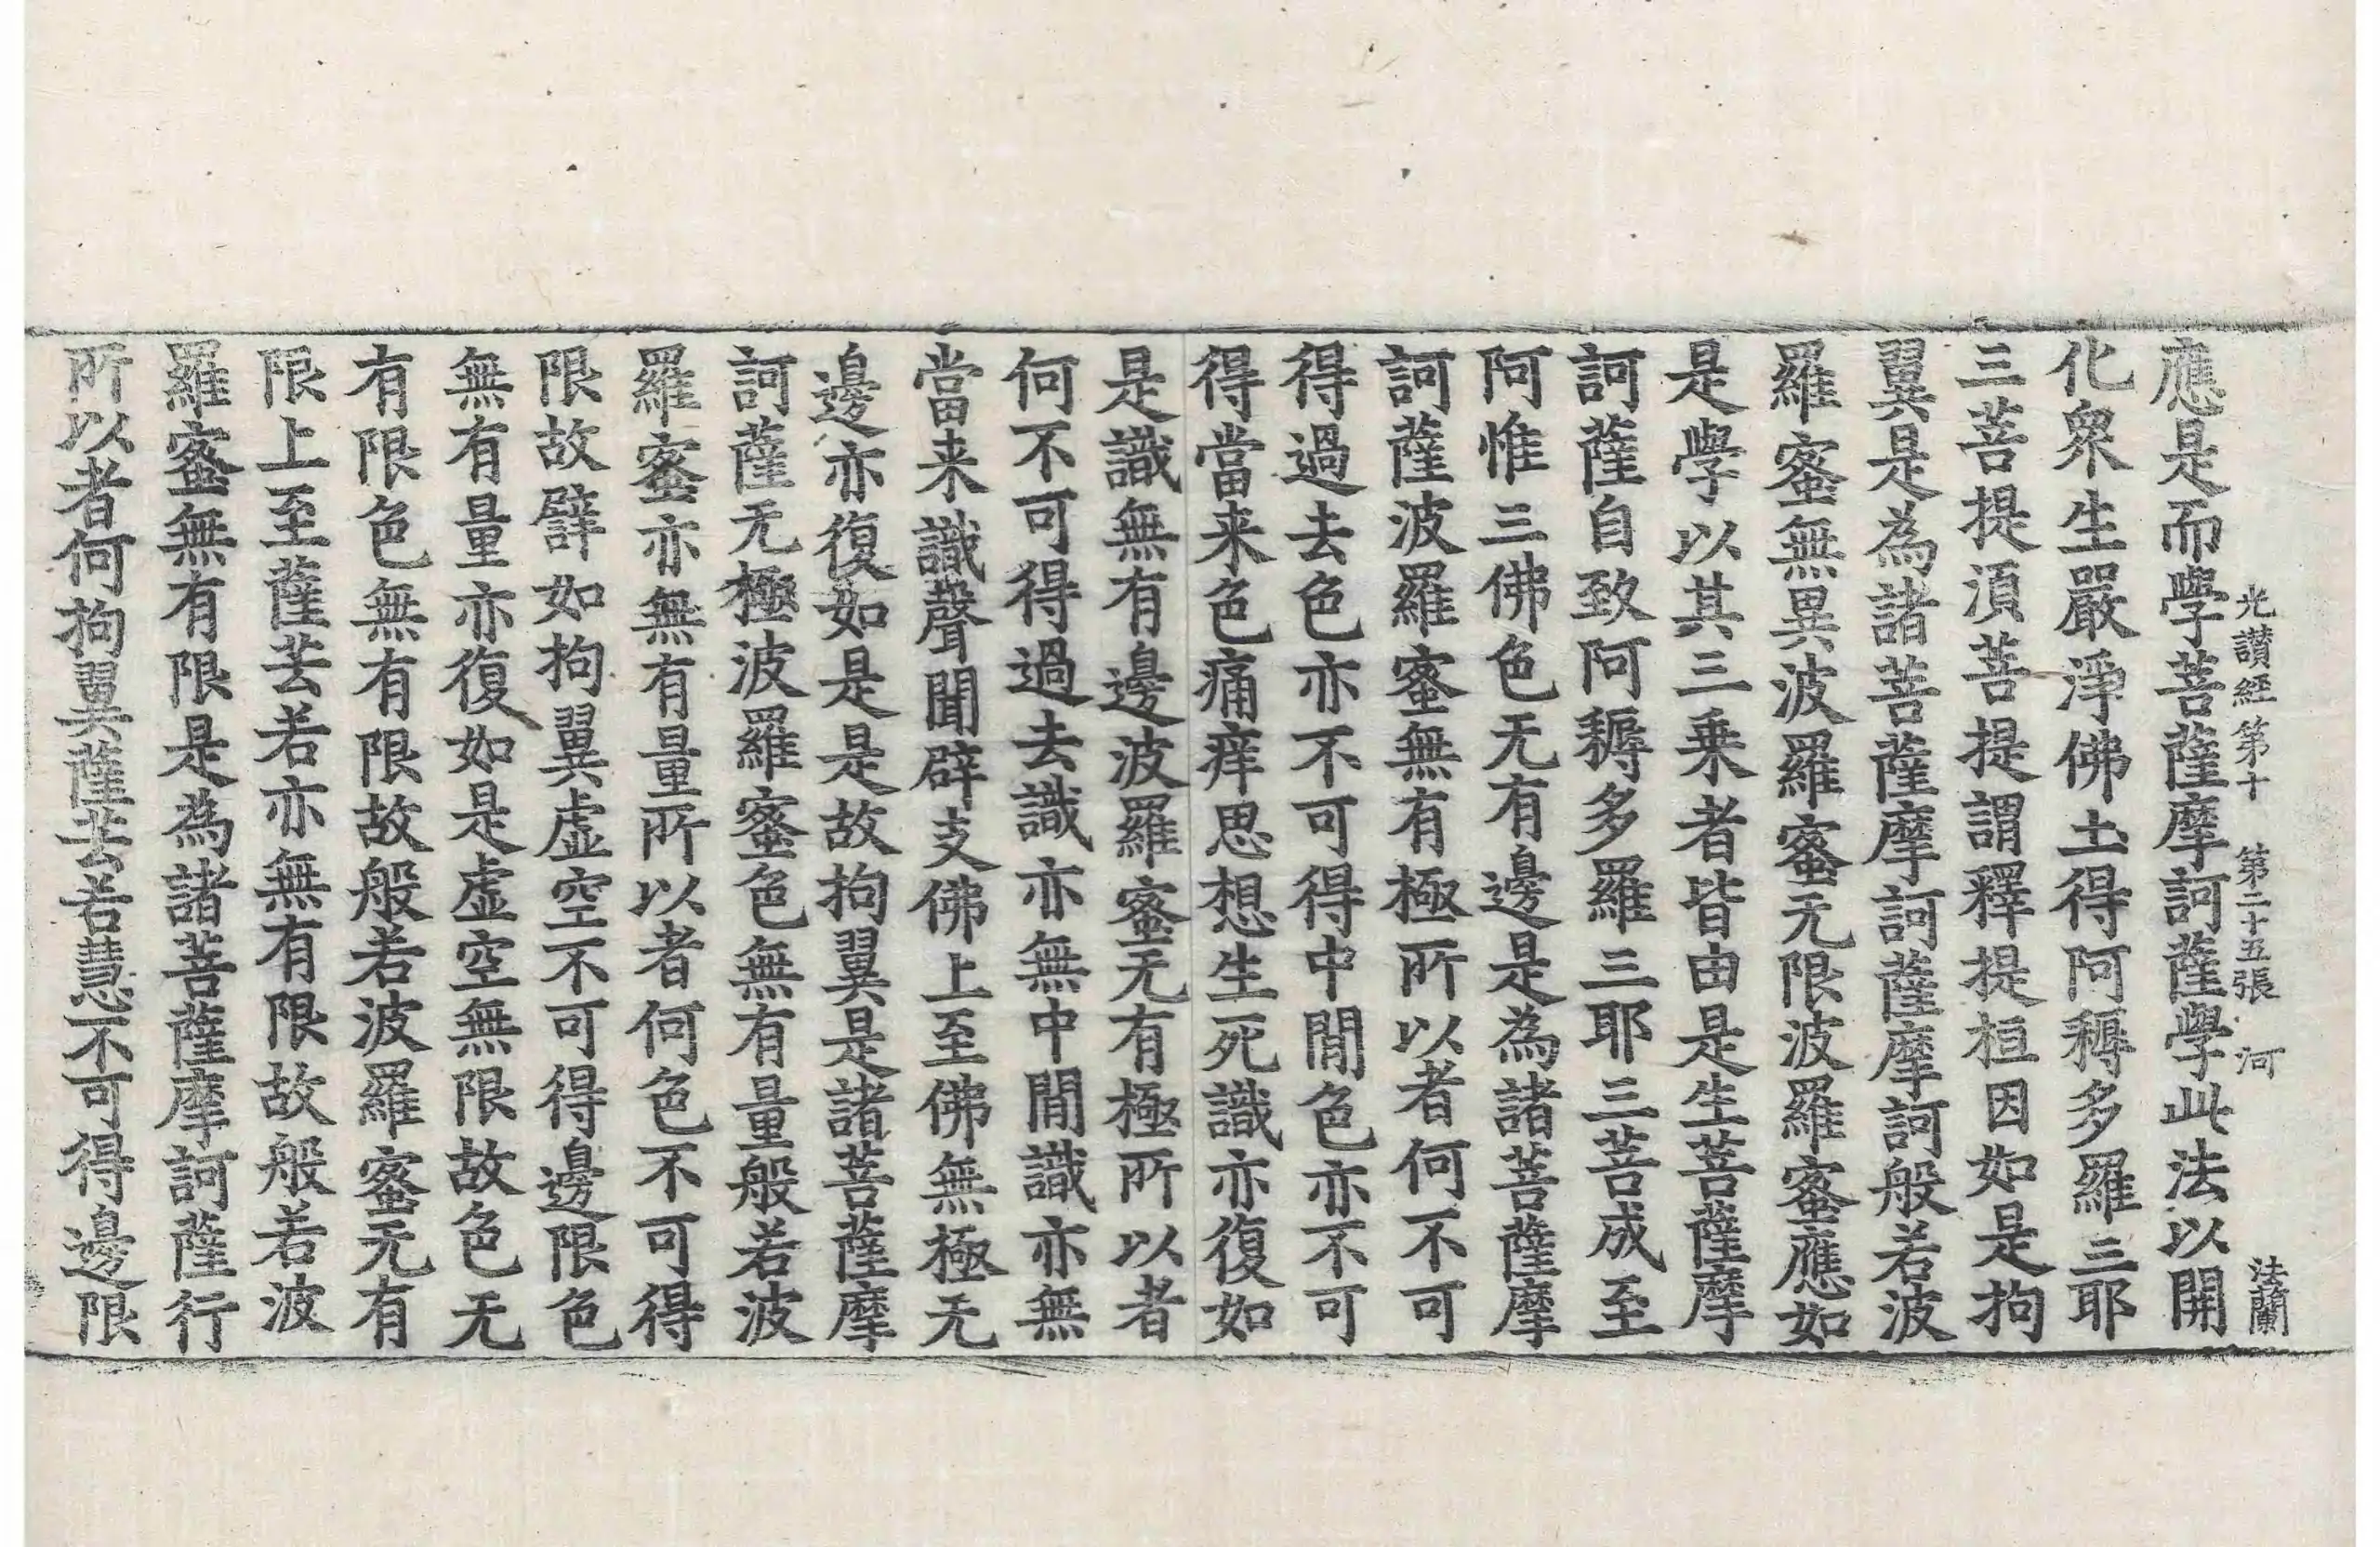 光讃経第十　第二十五張　河　法蘭
應是而學菩薩摩訶薩學此法以開
化衆生嚴淨佛土得阿耨多羅三耶
三菩提湏菩提謂釋提桓因如是拘
翼是為諸菩薩摩訶薩摩訶般若波
羅蜜無異波羅蜜无限波羅蜜應如
是學以其三乗者皆由是生菩薩摩
訶薩自致阿耨多羅三耶三菩成至
阿惟三佛色无有邊是為諸菩薩摩
訶薩波羅蜜無有極所以者何不可
得過去色亦不可得中閒色亦不可
得當来色痛痒思想生死識亦復如
是識無有邊波羅蜜无有極所以者
何不可得過去識亦無中閒識亦無
當来識聲聞辟支佛上至佛無極无
邊亦復如是是故拘翼是諸菩薩摩
訶薩无極波羅蜜色無有量般若波
羅蜜亦無有量所以者何色不可得
限故譬如拘翼虛空不可得邊限色
無有量亦復如是虛空無限故色无
有限色無有限故般若波羅蜜无有
限上至薩芸若亦無有限故般若波
羅蜜無有限是為諸菩薩摩訶薩行
所以者何拘翼薩芸若慧不可得邊限